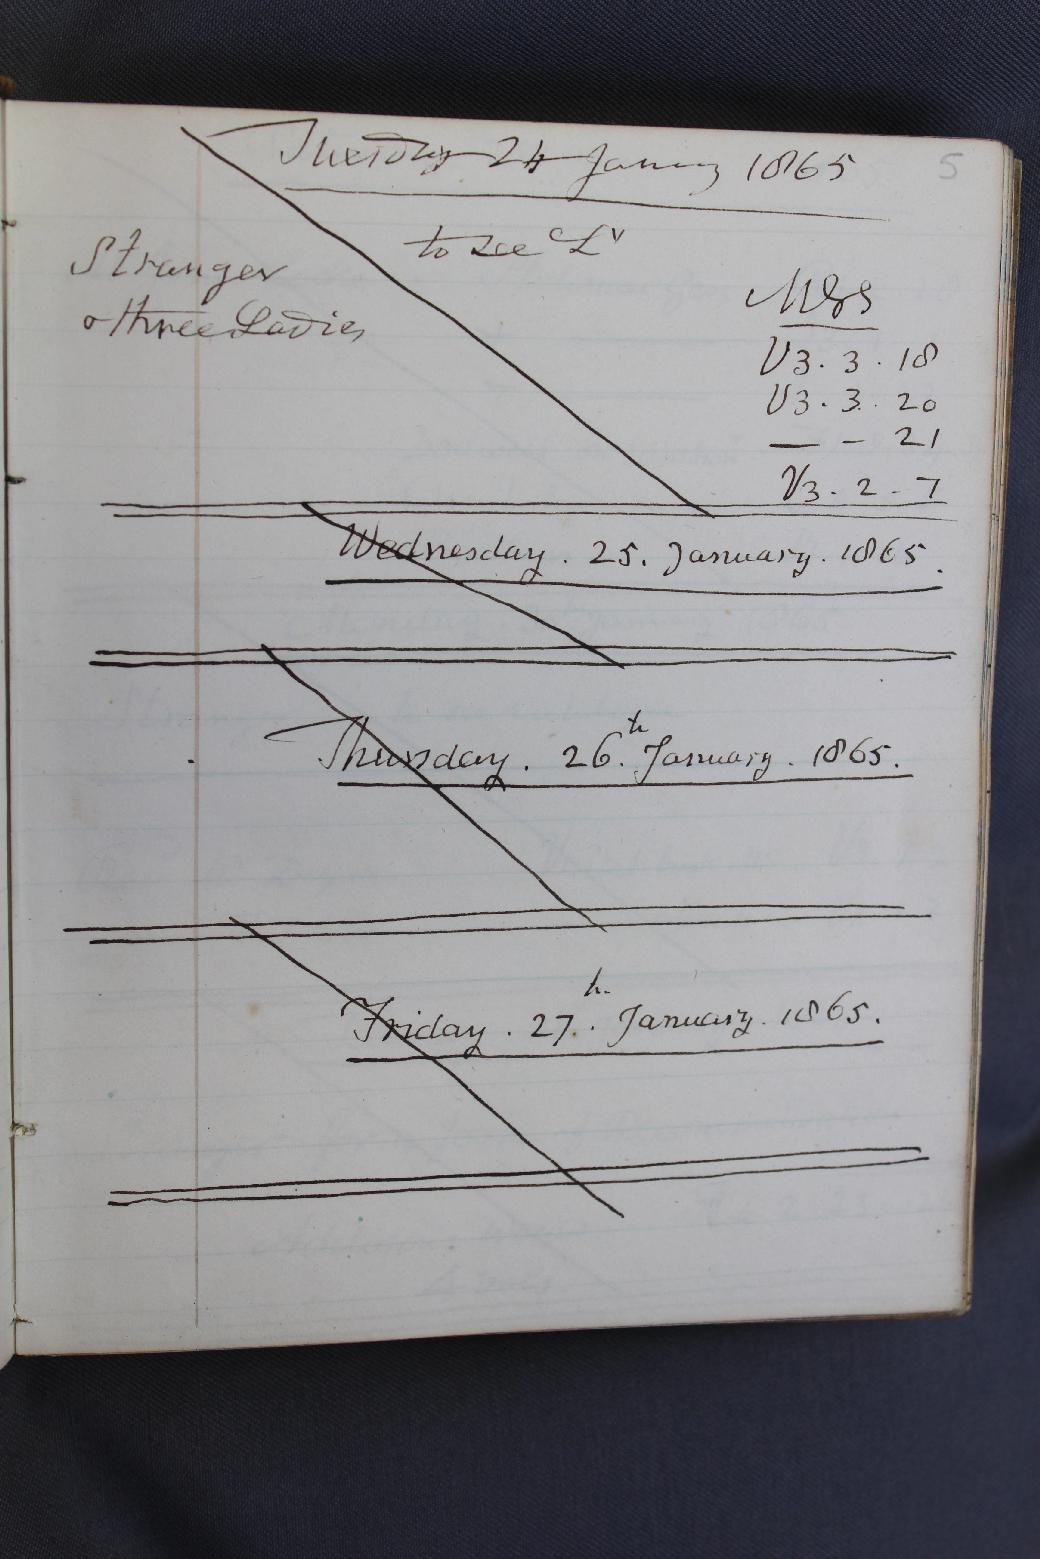 Tuesday 24 January 1865
5
to see L
Stranger
& three Ladies
MSS
V3 . 3 . 18
V3 . 3 . 20
— – 21
V3 . 2 - 7
Wednesday . 25 . January . 1865 .
Thursday . 26.th January . 1865 .
Friday . 27.th January . 1865 .